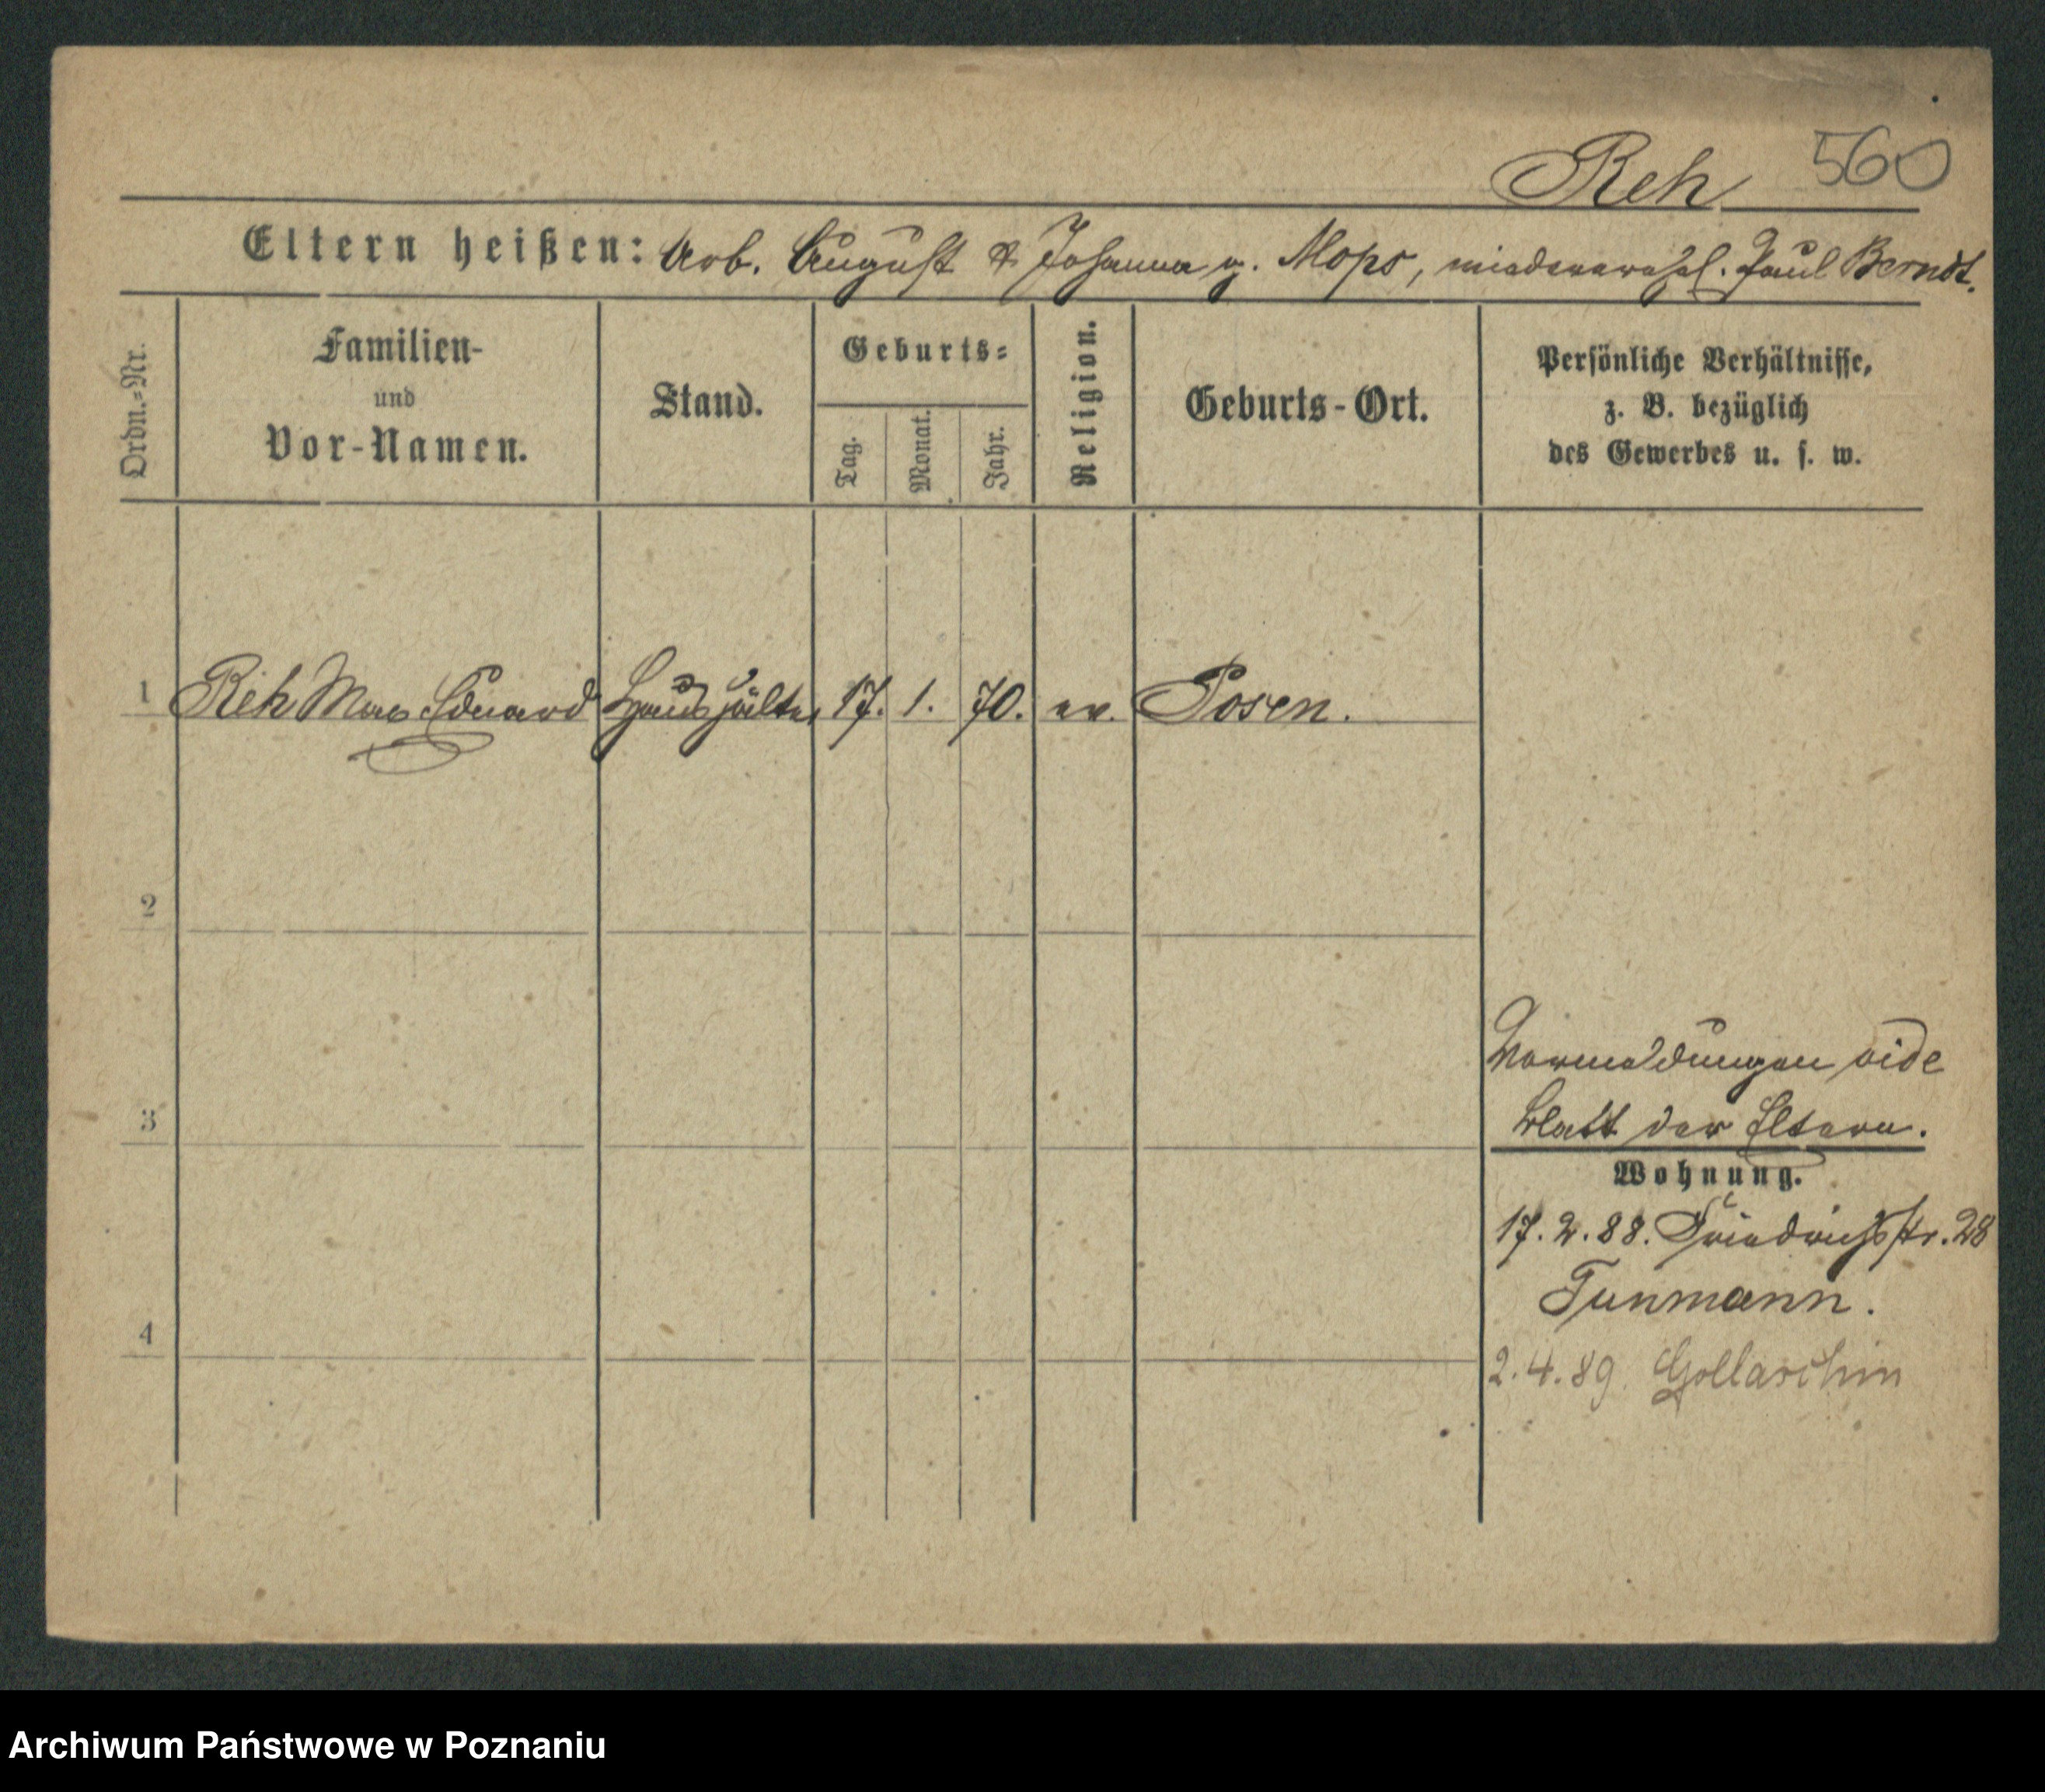 Reh 560
Eltern heißen: Arb. August & Johanna g. Mops, wiederverehel. Paul Berndt.
Ordn.-Nr.
Familien-
und
Vor-Namen.
Stand.
Geburts-
Tag.
Monat.
Jahr.
Religion.
Geburts-Ort.
Persönliche Verhältnisse,
z. B. bezüglich
des Gewerbes u. s. w.
1 Reh Max Eduard Haushälter 17. 1. 70. ev. Posen.
2
3
4
Vormeldungen vide
Blatt der Eltern.
Wohnung.
17. 2. 88. Friedrichstr. 28
Tunmann.
2. 4. 89. Gollaschin
Archiwum Państwowe w Poznaniu